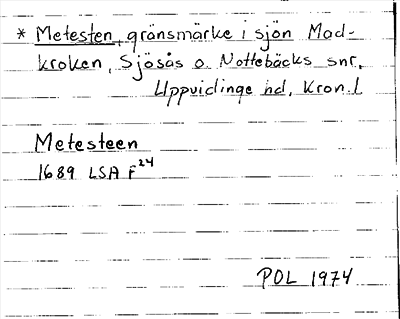 * Metesten, gränsmärke i sjön Mad-
kroken, Sjösås o. Nottebäcks snr,
Uppvidinge hd, Kron. l
Metesteen
1689 LSA F²⁴
POL 1974